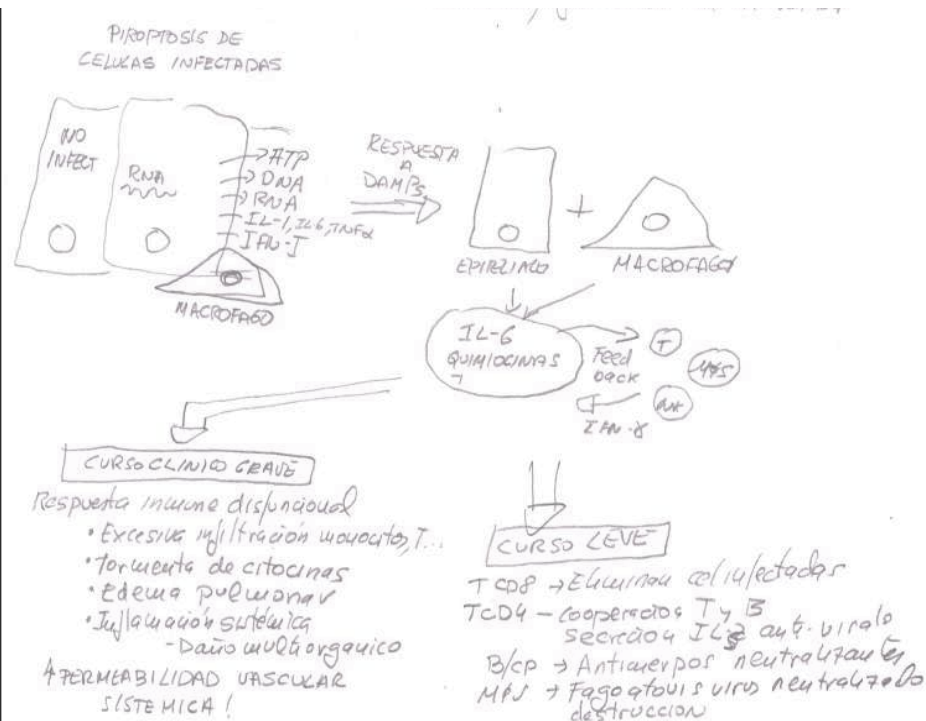 PIROPTOSIS DE
CELULAS INFECTADAS
NO
INFECT
RNA
ATP
DNA
RNA
IL-1, IL6, TNFα
IFN-I
MACROFAGO
RESPUESTA
A
DAMPs
EPITELIAO
+
MACROFAGO
IL-6
QUIMIOCINAS
Feed
back
T
MPS
NK
IFN-γ
CURSO CLINICO GRAVE
Respuesta inmune disfuncional
• Excesiva infiltración monocitos, T...
• Tormenta de citocinas
• Edema pulmonar
• Inflamación sistémica
- Daño multiorganico
↑ PERMEABILIDAD VASCULAR
SISTEMICA!
CURSO LEVE
TCD8 → Eliminan cel infectadas
TCD4 - cooperación T y B
secreción ILs anti-virales
B/CP → Anticuerpos neutralizantes
MPS → Fagocitosis virus neutralizado
destruccion